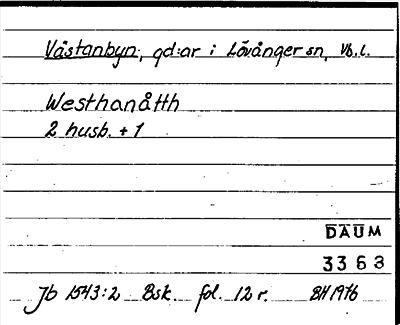 Västanbyn, gd:ar i Lövånger sn, Vb. l.
Westhanåtth
2 husb. + 1
DAUM
3363
Jb 1543:2 Bsk. fol. 12 r. BH 1976